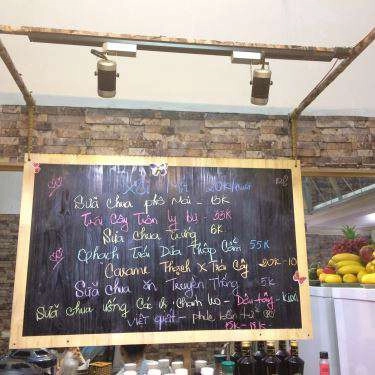 Sữa chua phô Mai - 15K
Trái Cây Trộn ly bự - 35K
Sữa chua trắng 6K
Thạch Trái Dừa Thập Cẩm 55K
Carame Thạch X Trái Cây 20K-10
Sữa chua ăn Truyền Thống 5K
Sữa chua uống Các vị: Chanh leo - Dâu tây - kiwi
việt quất - phúc bồn tử
15K - 18K